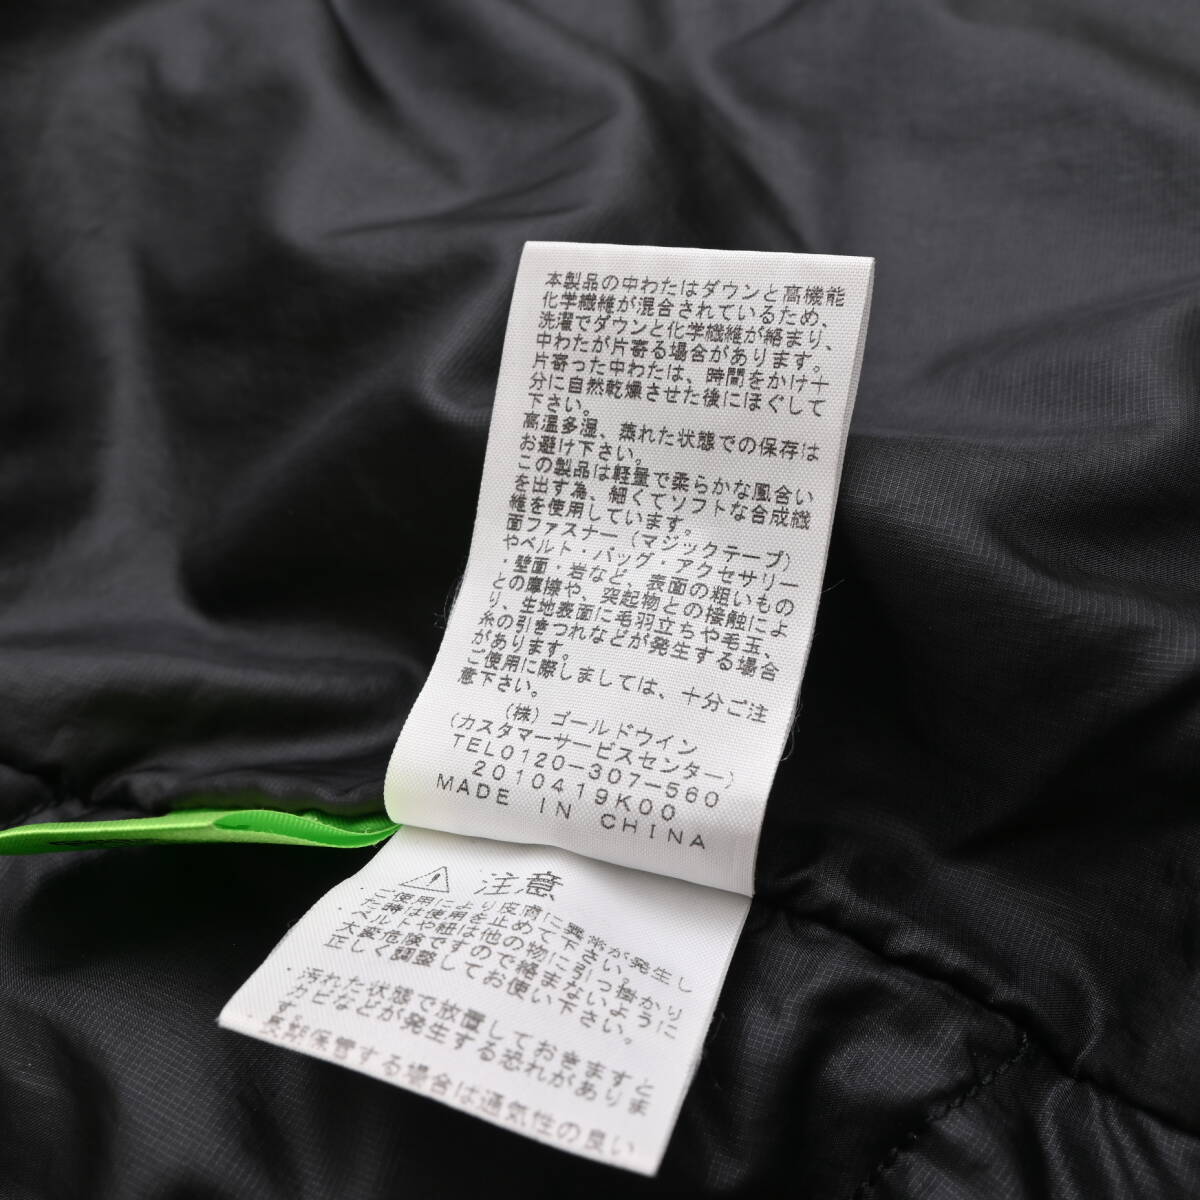 本製品の中わたはダウンと高機能
化学繊維が混合されているため、
洗濯でダウンと化学繊維が絡まり、
中わたが片寄る場合があります。
片寄った中わたは、時間をかけ十
分に自然乾燥させた後にほぐして
下さい。
高温多湿、蒸れた状態での保存は
お避け下さい。
この製品は軽量で柔らかな風合い
を出す為、細くてソフトな合成繊
維を使用しています。
面ファスナー(マジックテープ)
やベルト・バッグ・アクセサリー
・壁面・岩など、表面の粗いもの
との摩擦や、突起物との接触によ
り、生地表面に毛羽立ちや毛玉、
糸の引きつれなどが発生する場合
があります。
ご使用に際しましては、十分ご注
意下さい。
(株)ゴールドウイン
(カスタマーサービスセンター)
TEL0120-307-560
2010419K00
MADE IN CHINA
⚠ 注意
ご使用により皮膚に異常が発生し
た時は使用を止めて下さい。
・ベルトや紐は他の物に引っ掛かり
大変危険ですので絡まないように
正しく調整してお使い下さい。
・汚れた状態で放置しておきますと
カビなどが発生する恐れがありま
す。
長期保管する場合は通気性の良い